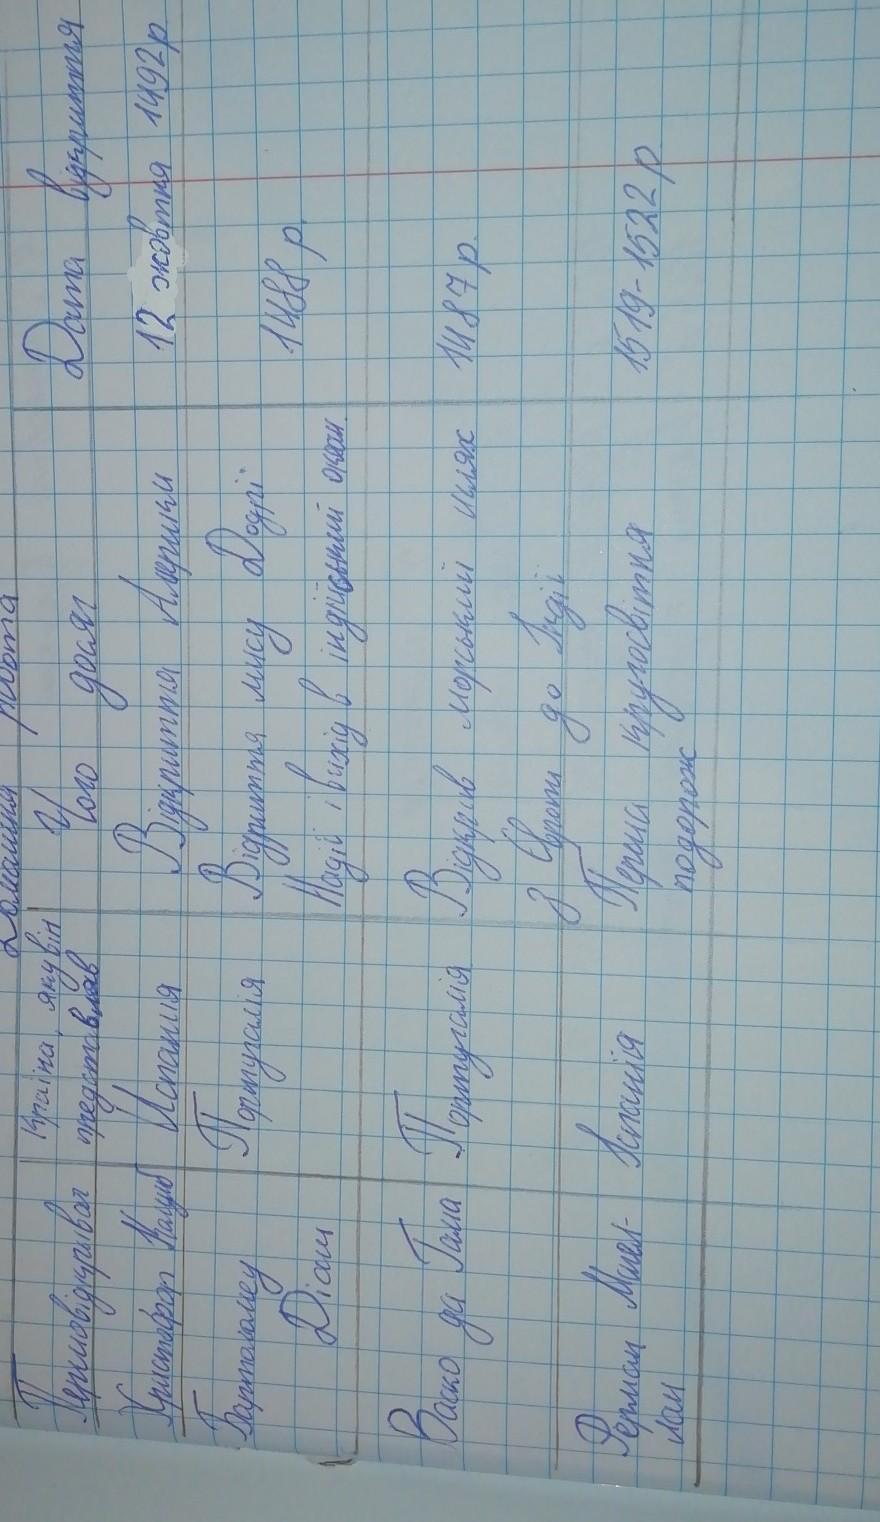 Домашня робота
Першовідкривач Країна, яку він представляв Чого досяг Дата відкриття
Христофор Колумб Испанія Відкриття Америки 12 жовтня 1492 р
Бартоломеу Діаш Португалія Відкриття мису Доброї
Надії і вихід в індійський океан. 1488 р.
Васко да Гама Португалія Відкрив морський шлях
з Європи до Індії 1487 р.
Фернан Магел-
лан Іспанія Перша кругосвітня
подорож 1519-1522 р